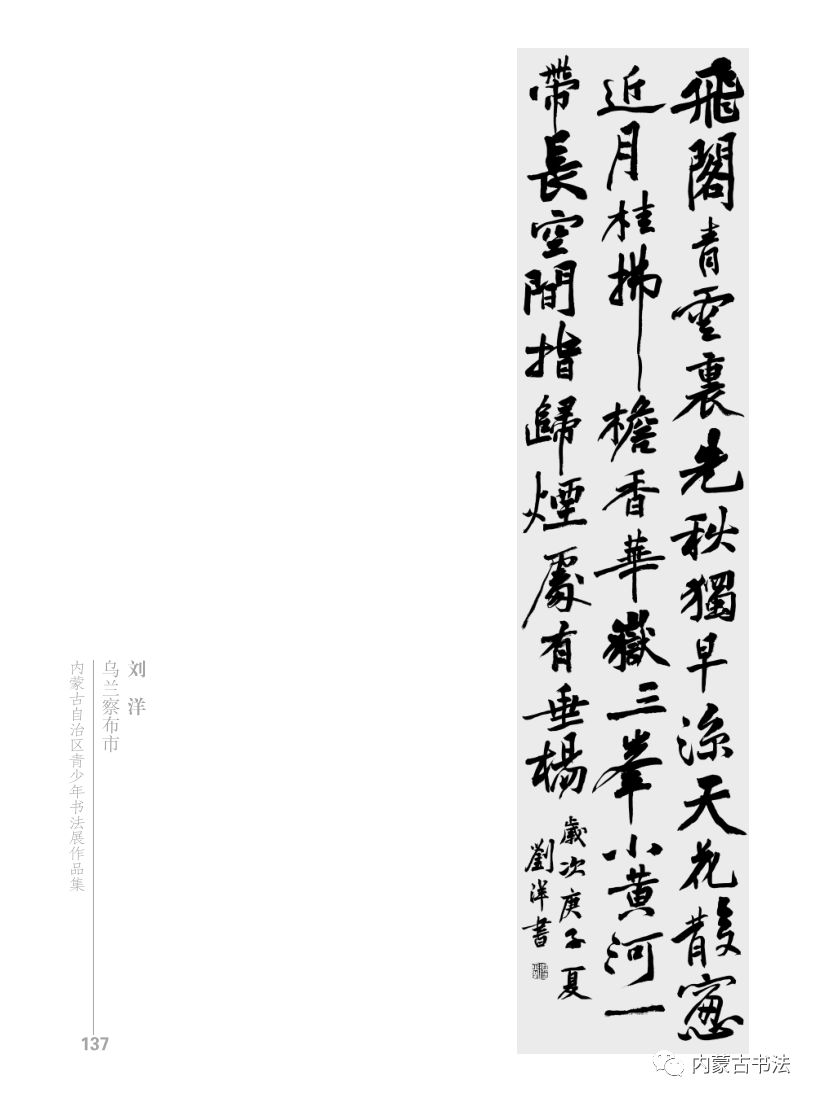 飛閣青雲裏先秋獨早涼天花散窻
近月桂拂檐香華嶽三峯小黄河一
帶長空間指歸煙處有垂楊
歲次庚子夏
劉洋書
刘洋
乌兰察布市
内蒙古自治区青少年书法展作品集
137
内蒙古书法